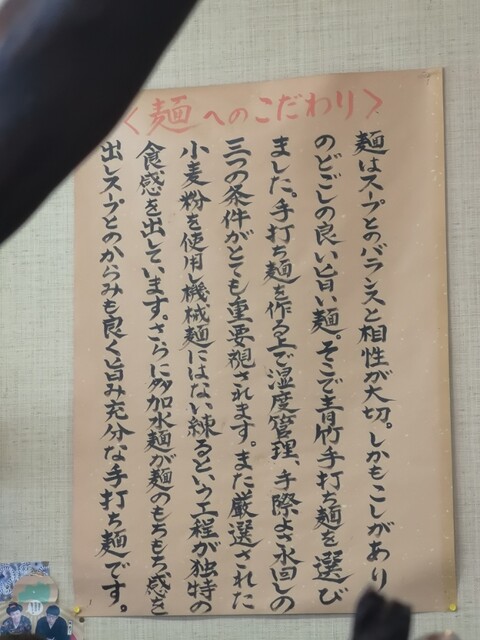 〈麺へのこだわり〉
麺はスープとのバランスと相性が大切。しかもこしがあり
のどごしの良い旨い麺。そこで青竹手打ち麺を選び
ました。手打ち麺を作る上で湿度管理、手際よさ水回しの
三つの条件がとても重要視されます。また厳選された
小麦粉を使用し機械麺にはない練るという工程が独特の
食感を出しています。さらに多加水麺が麺のもちもち感を
出しスープとのからみも良く旨み充分な手打ち麺です。